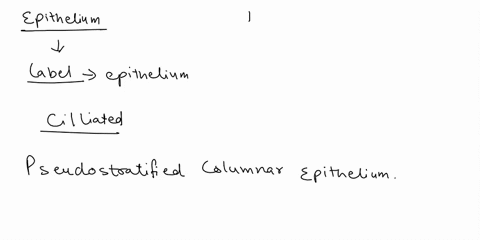 Epithelium
Label → epithelium
Cilliated
Pseudostratified Columnar Epithelium.